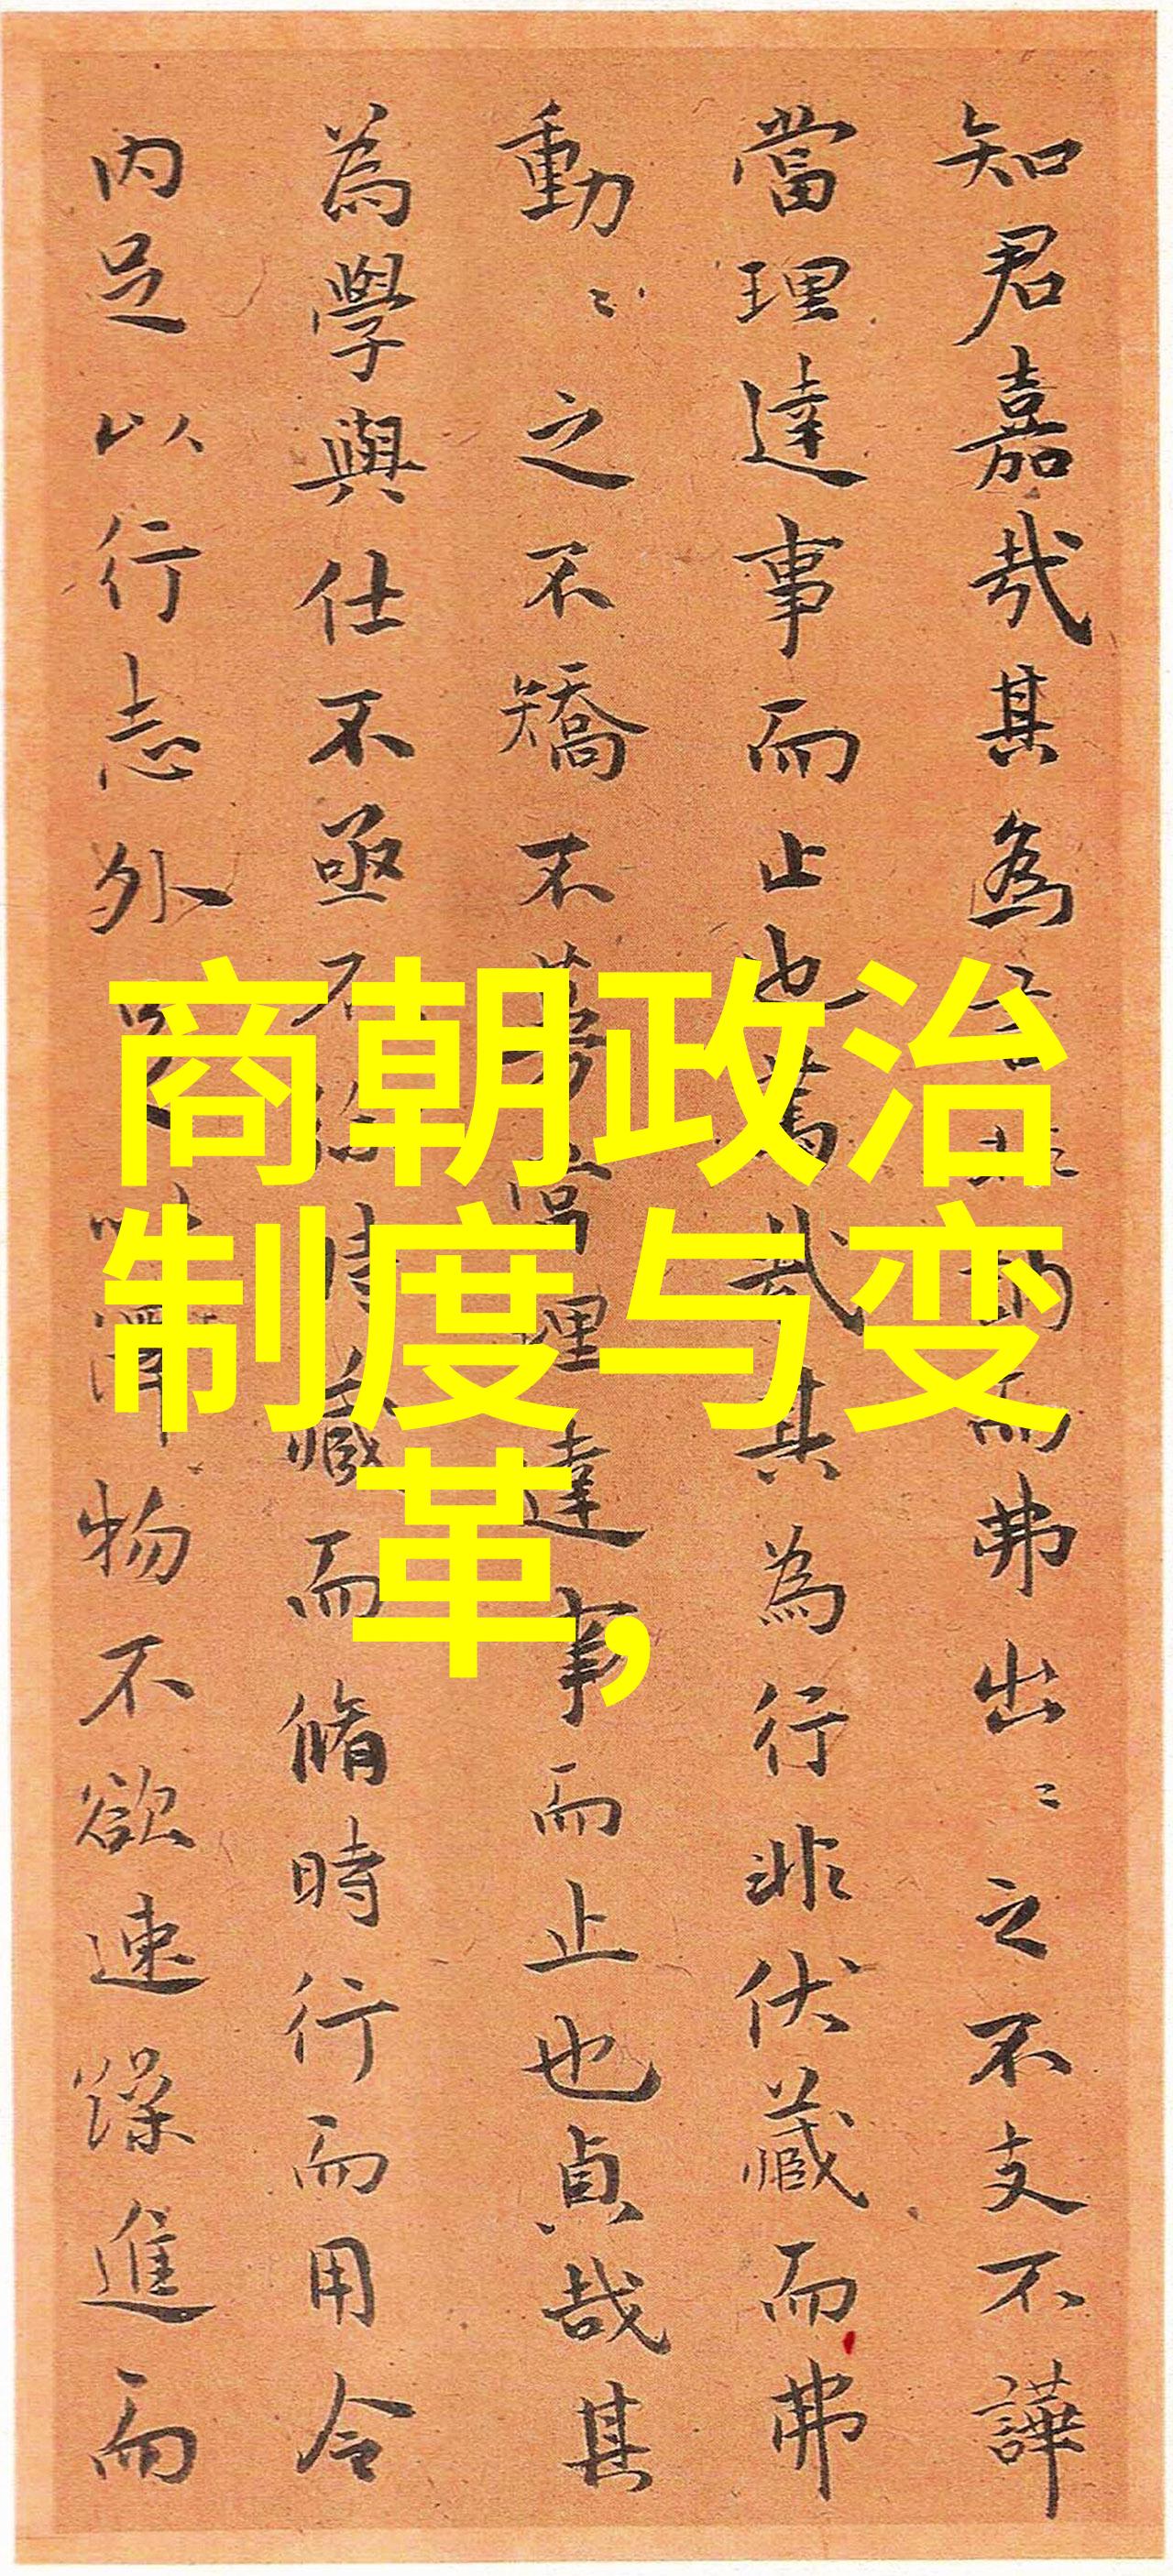 知君嘉哉其為而弗出〻之不支不譁
當理達事而止也為哉其為行非伏藏而弗
動〻之不矯不當理達事而止也貞哉其
為學與仕不亟不時藏而脩時行而用令
内足以行志外物不欲速躁進而
商朝政治
制度与变
革,